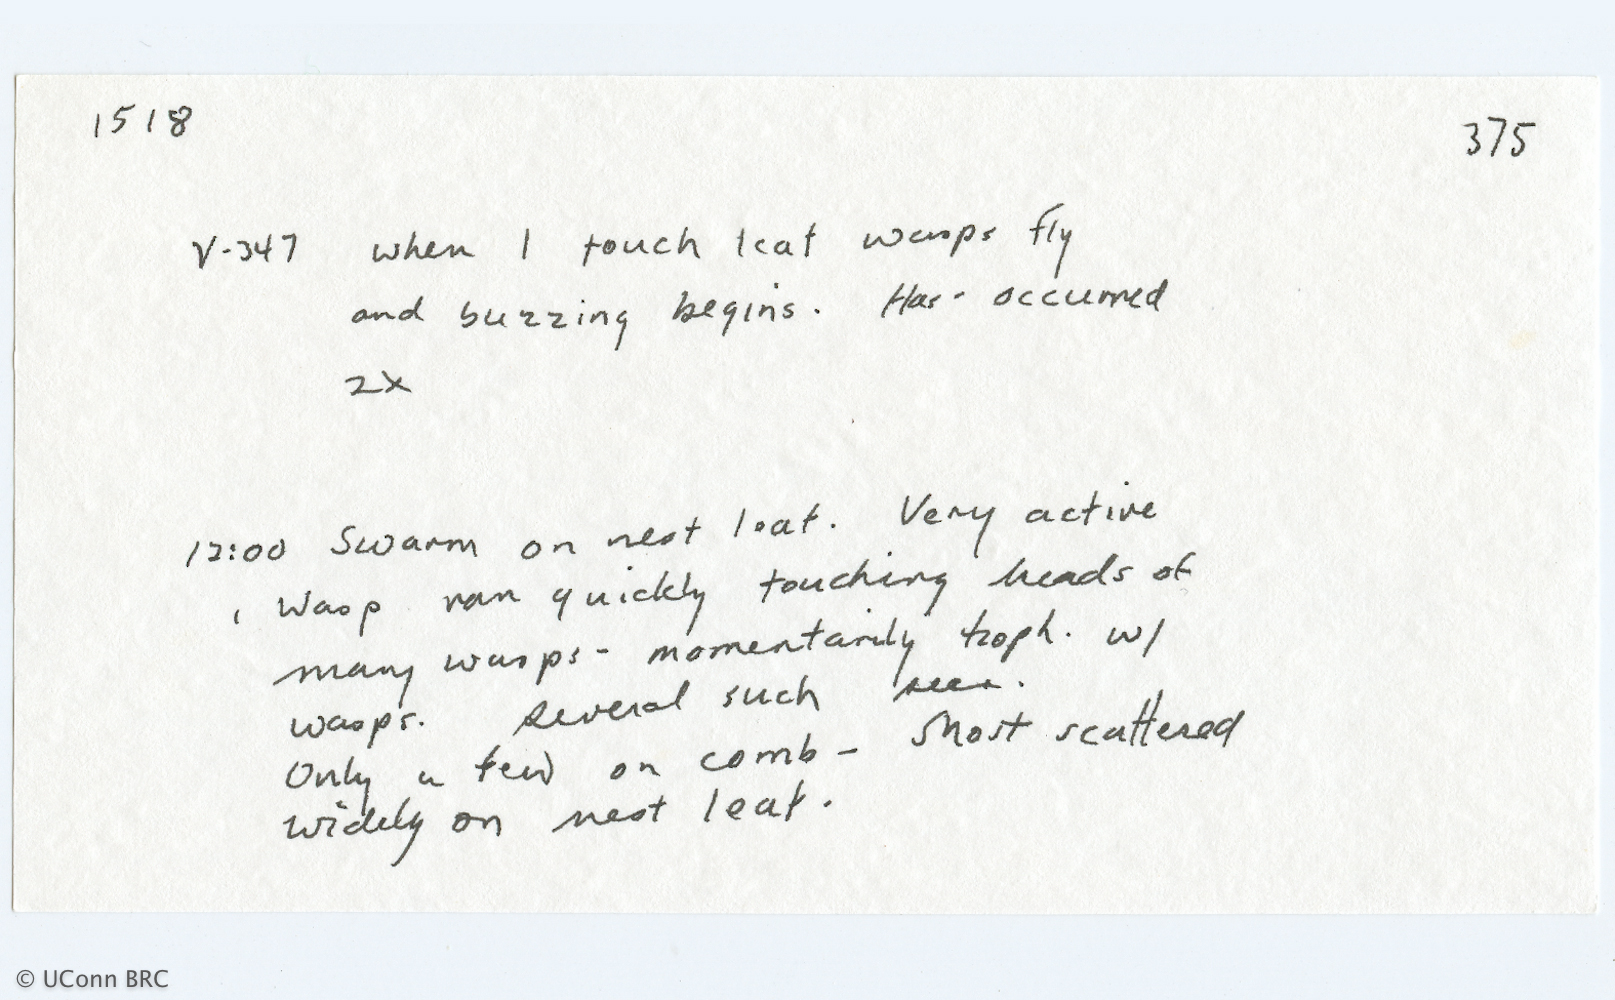 1518
375
V-347 when I touch leaf wasps fly
and buzzing begins. Has occurred
2X
12:00 Swarm on nest leaf. Very active
1 Wasp ran quickly touching heads of
many wasps - momentarily troph. w/
wasps. Several such seen.
Only a few on comb - Most scattered
widely on nest leaf.
© UConn BRC